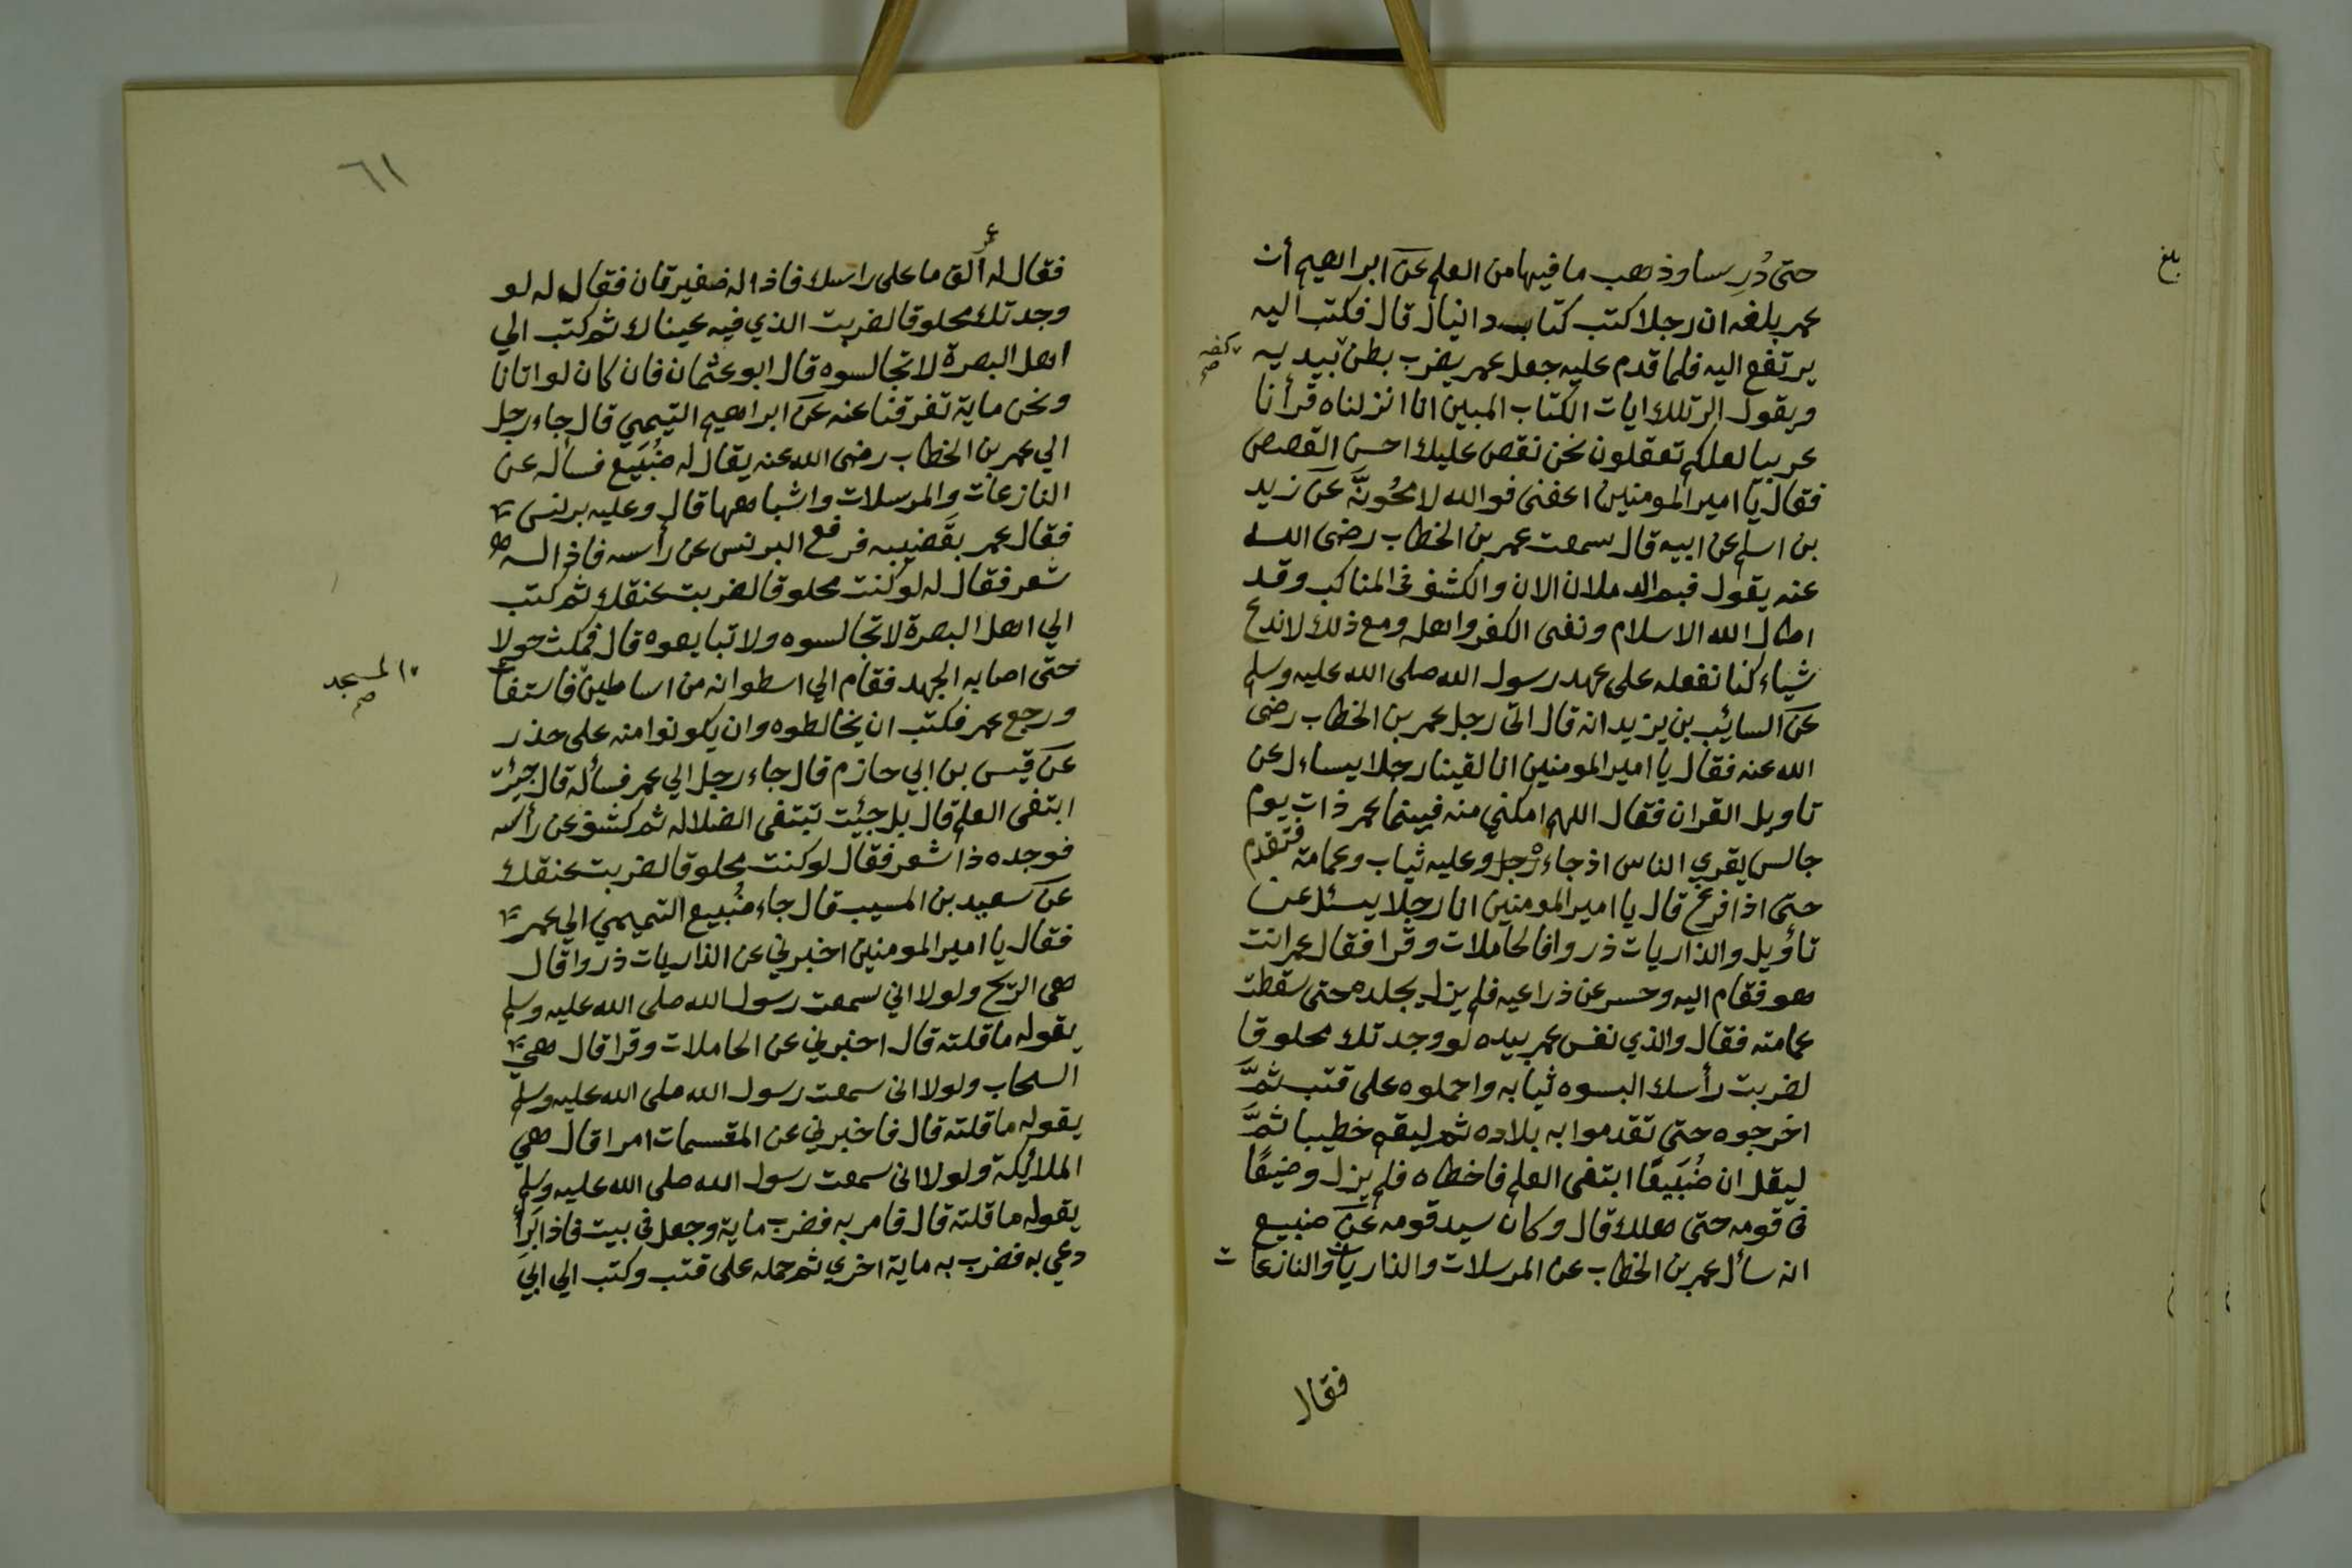 بلغ
حتى دُرِسا وذهب ما فيها من العلم عن ابراهيم أن
عمر بلغه ان رجلا كتب كتاب دانيال قال فكتب اليه
يرتفع اليه فلما قدم عليه جعل عمر يضرب بطن بيديه
كفه صح
ويقول الر تلك ايات الكتاب المبين انا انزلناه قرأنا
عربيا لعلكم تعقلون نحن نقص عليك احسن القصص
فقال يا امير المومنين اعفنى فوالله لامحُونَّه عن زيد
بن اسلم عن ابيه قال سمعت عمر بن الخطاب رضى الله
عنه يقول فيم الرملان الان والكشف فى المناكب وقد
اطال الله الاسلام ونفى الكفر واهله ومع ذلك لا ندع
شياء كنا نفعله على عهد رسول الله صلى الله عليه وسلم
عن السائب بن يزيد انه قال اتى رجل عمر بن الخطاب رضى
الله عنه فقال يا امير المومنين انا لقينا رجلا يساءل عن
تاويل القران فقال اللهم امكني منه فبينما عمر ذات يوم
جالس يقري الناس اذ جاءه رجل وعليه ثياب وعمامة فتقدم
حتى اذا فرغ قال يا امير المومنين انا رجلا يسئل عن
تأويل والذاريات ذروا فالحاملات وقرا فقال عمر انت
هو فقام اليه وحسر عن ذراعيه فلم يزل يجلده حتى سقطت
عمامته فقال والذي نفس عمر بيده لو وجدتك محلوقا
لضربت رأسك البسوه ثيابه واحملوه على قتب ثمَّ
اخرجوه حتى تقدموا به بلاده ثم ليقم خطيبا ثمَّ
ليقل ان ضُبَيعًا ابتغى العلم فاخطاه فلم يزل وضيعًا
فى قومه حتى هلك قال وكان سيد قومه عن ضبيع
انه سأل عمر بن الخطاب عن المرسلات والذاريات والنازعات
فقال
٦١
فقال له عمر ألق ما على راسك فاذا له ضفيرتان فقال له لو
وجدتك محلوقا لضربت الذي فيه عيناك ثم كتب الي
اهل البصرة لا تجالسوه قال ابو عثمان فان كان لو اتانا
ونحن ماية تفرقنا عنه عن ابراهيم التيمي قال جاء رجل
الي عمر بن الخطاب رضى الله عنه يقال له ضُبَيع فساله عن
النازعات والمرسلات واشباهها قال وعليه برنس
فقال عمر بقَضيبه فرفع البرنس عن رأسه فاذا له
شعر فقال له لو كنت محلوقا لضربت عنقك ثم كتب
الي اهل البصرة لا تجالسوه ولا تبايعوه قال فمكث حولا
حتى اصابه الجهد فقام الي اسطوانه من اساطين فاستغاث
المسجد صح
ورجع عمر فكتب ان يخالطوه وان يكونوا منه على حذر
عن قيس بن ابي حازم قال جاء رجل الي عمر فسأله قال جيئت
ابتغى العلم قال بل جيئت تبتغى الضلاله ثم كشف عن رأسه
فوجده ذا شعر فقال لو كنت محلوقا لضربت عنقك
عن سعيد بن المسيب قال جاء ضُبيع التميمي الي عمر
فقال يا امير المومنين اخبرني عن الذاريات ذروا قال
هى الريح ولولا اني سمعت رسول الله صلى الله عليه وسلم
يقوله ما قلته قال اخبرني عن الحاملات وقرا قال هي
السحاب ولولا انى سمعت رسول الله صلى الله عليه وسلم
يقوله ما قلته قال فاخبرني عن المقسمات امرا قال هي
الملائيكة ولولا انى سمعت رسول الله صلى الله عليه وسلم
يقوله ما قلته قال فامر به فضرب ماية وجعل فى بيت فاذا بَرَأَ
دعي به فضرب به ماية اخري ثم حمله على قتب وكتب الي ابي